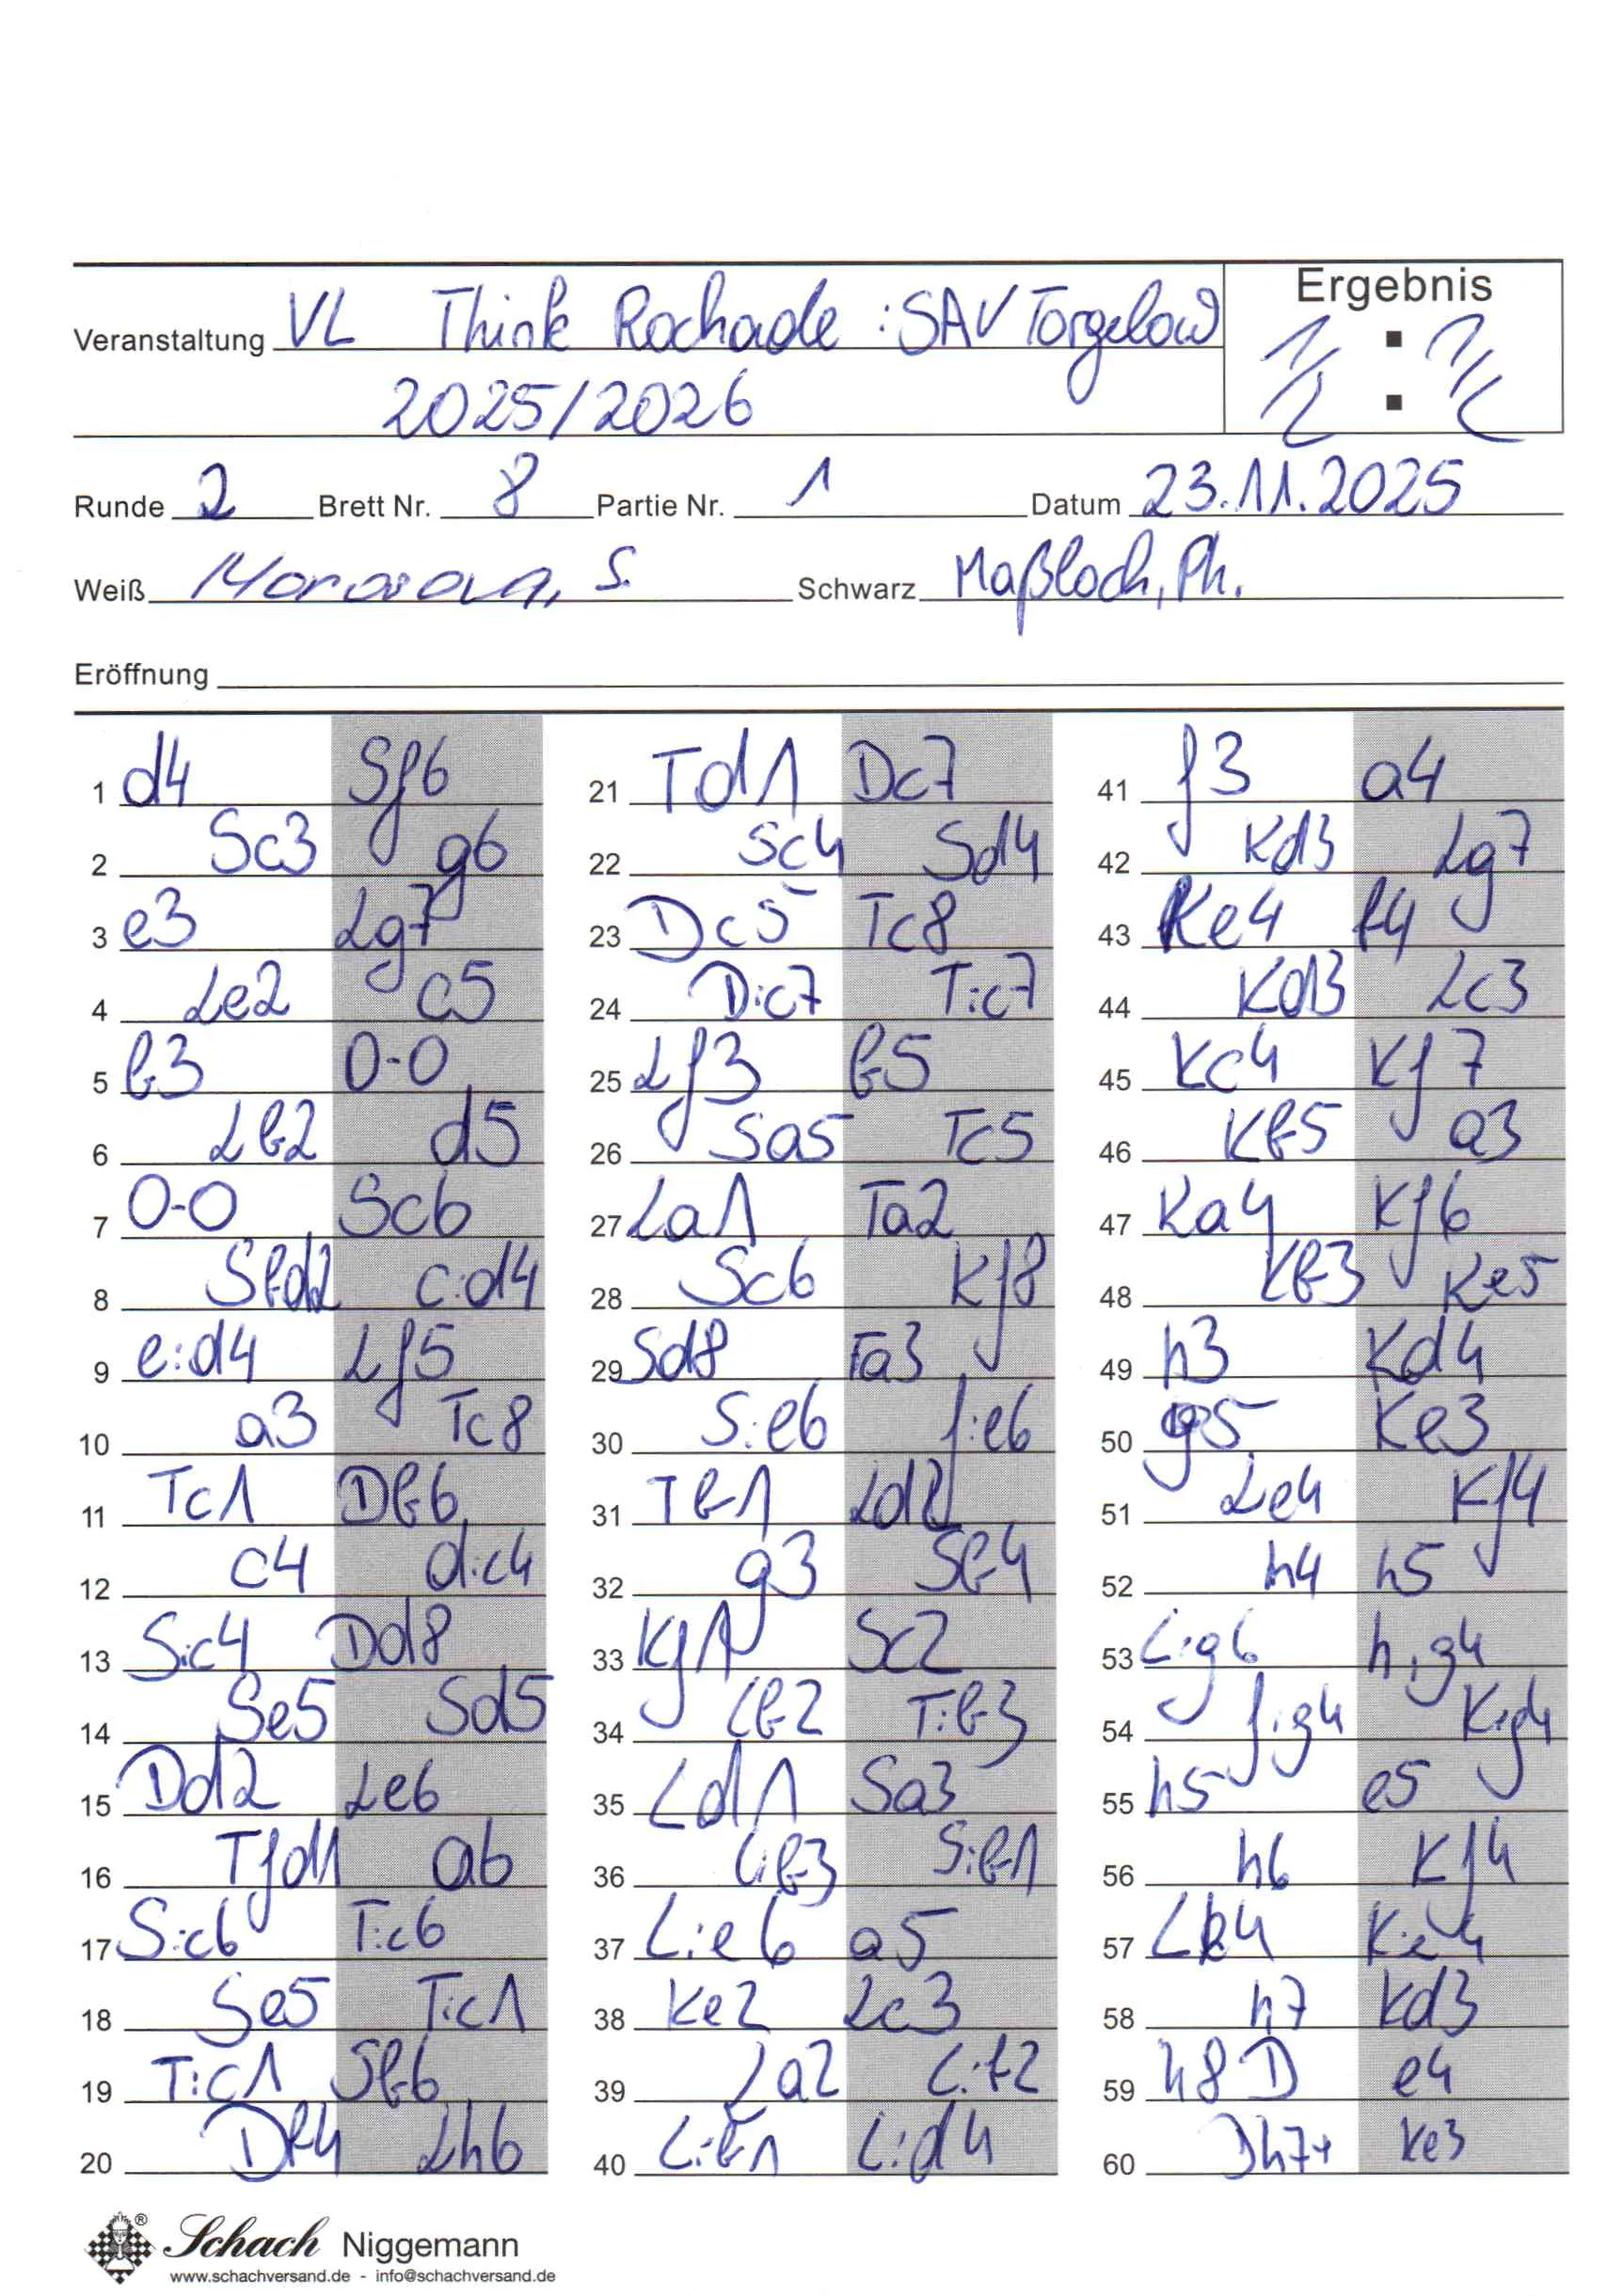 Ergebnis
Veranstaltung VL Think Rochade : SAV Torgelow
2025/2026
1/2 : 1/2
Runde 2 Brett Nr. 8 Partie Nr. 1 Datum 23.11.2025
Weiß S. Schwarz Maßloch, Ph.
Eröffnung
1 d4 Sf6
2 Sc3 g6
3 e3 Lg7
4 Le2 c5
5 b3 0-0
6 Lb2 d5
7 0-0 Sc6
8 Sbd2 c:d4
9 e:d4 Lf5
10 a3 Tc8
11 Tc1 Db6
12 c4 d:c4
13 S:c4 Dd8
14 Se5 Sd5
15 Dd2 Le6
16 Tfd1 a6
17 S:c6 T:c6
18 Se5 T:c1
19 T:c1 Sb6
20 Db4 Lh6
21 Td1 Dc7
22 Sc4 Sd4
23 Dc5 Tc8
24 D:c7 T:c7
25 Lf3 b5
26 Sa5 Tc5
27 La1 Ta2
28 Sc6 Kf8
29 Sd8 Ta3
30 S:e6 f:e6
31 Tb1 Ld2
32 g3 Sb4
33 Kf1 Sc2
34 Lb2 T:b3
35 Ld1 Sa3
36 L:b3 S:b1
37 L:e6 a5
38 Ke2 Lc3
39 La2 L:b2
40 L:b1 L:d4
41 f3 a4
42 Kd3 Lg7
43 Ke4 b4
44 Kd3 Lc3
45 Kc4 Kf7
46 Kb5 a3
47 Ka4 Kf6
48 Kb3 Ke5
49 h3 Kd4
50 g5 Ke3
51 Le4 Kf4
52 h4 h5
53 L:g6 h:g4
54 f:g4 K:g4
55 h5 e5
56 h6 Kf4
57 Lb4 K:e4
58 h7 Kd3
59 h8D e4
60 Dh7+ Ke3
®
Schach Niggemann
www.schachversand.de - info@schachversand.de